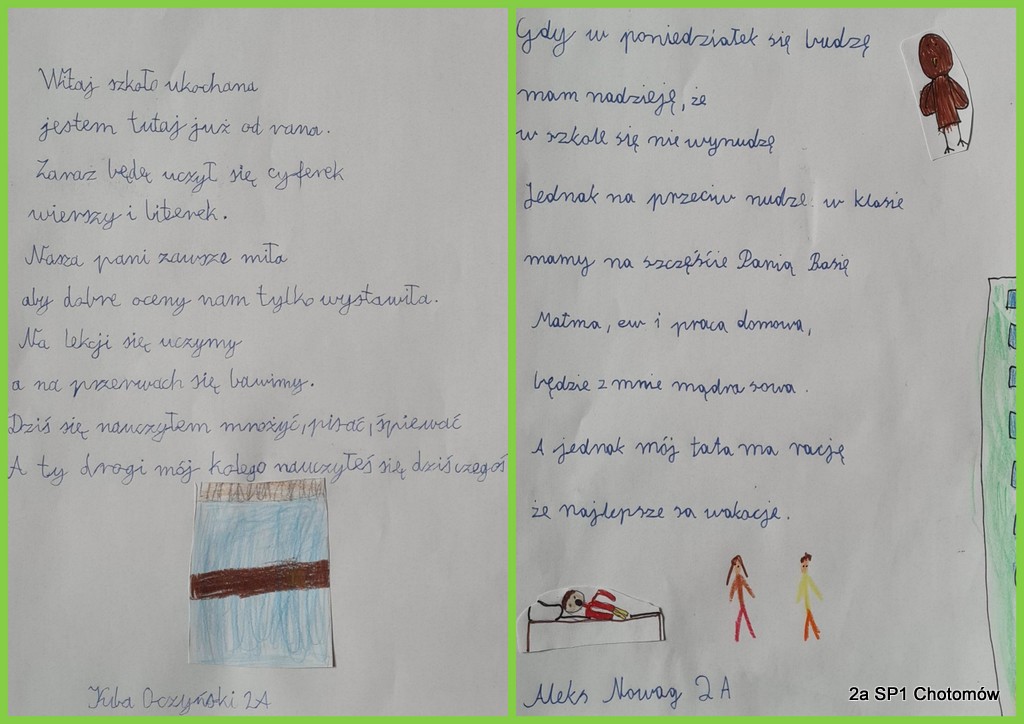 Witaj szkoło ukochana
jestem tutaj już od rana.
Zaraz będę uczył się cyferek
wierszy i literek.
Nasza pani zawsze miła
aby dobre oceny nam tylko wystawiła.
Na lekcji się uczymy
a na przerwach się bawimy.
Dziś się nauczyłem mnożyć, pisać, śpiewać
A ty drogi mój kolego nauczyłeś się dziś czegoś
Kuba Oczyński 2A
Gdy w poniedziałek się budzę
mam nadzieję, że
w szkole się nie wynudzę
Jednak na przeciw nudze w klasie
mamy na szczęście Panią Basię
Matma, ew i praca domowa,
będzie z mnie mądra sowa.
A jednak mój tata ma rację
że najlepsze sa wakacje.
Aleks Nowag 2A
2a SP1 Chotomów